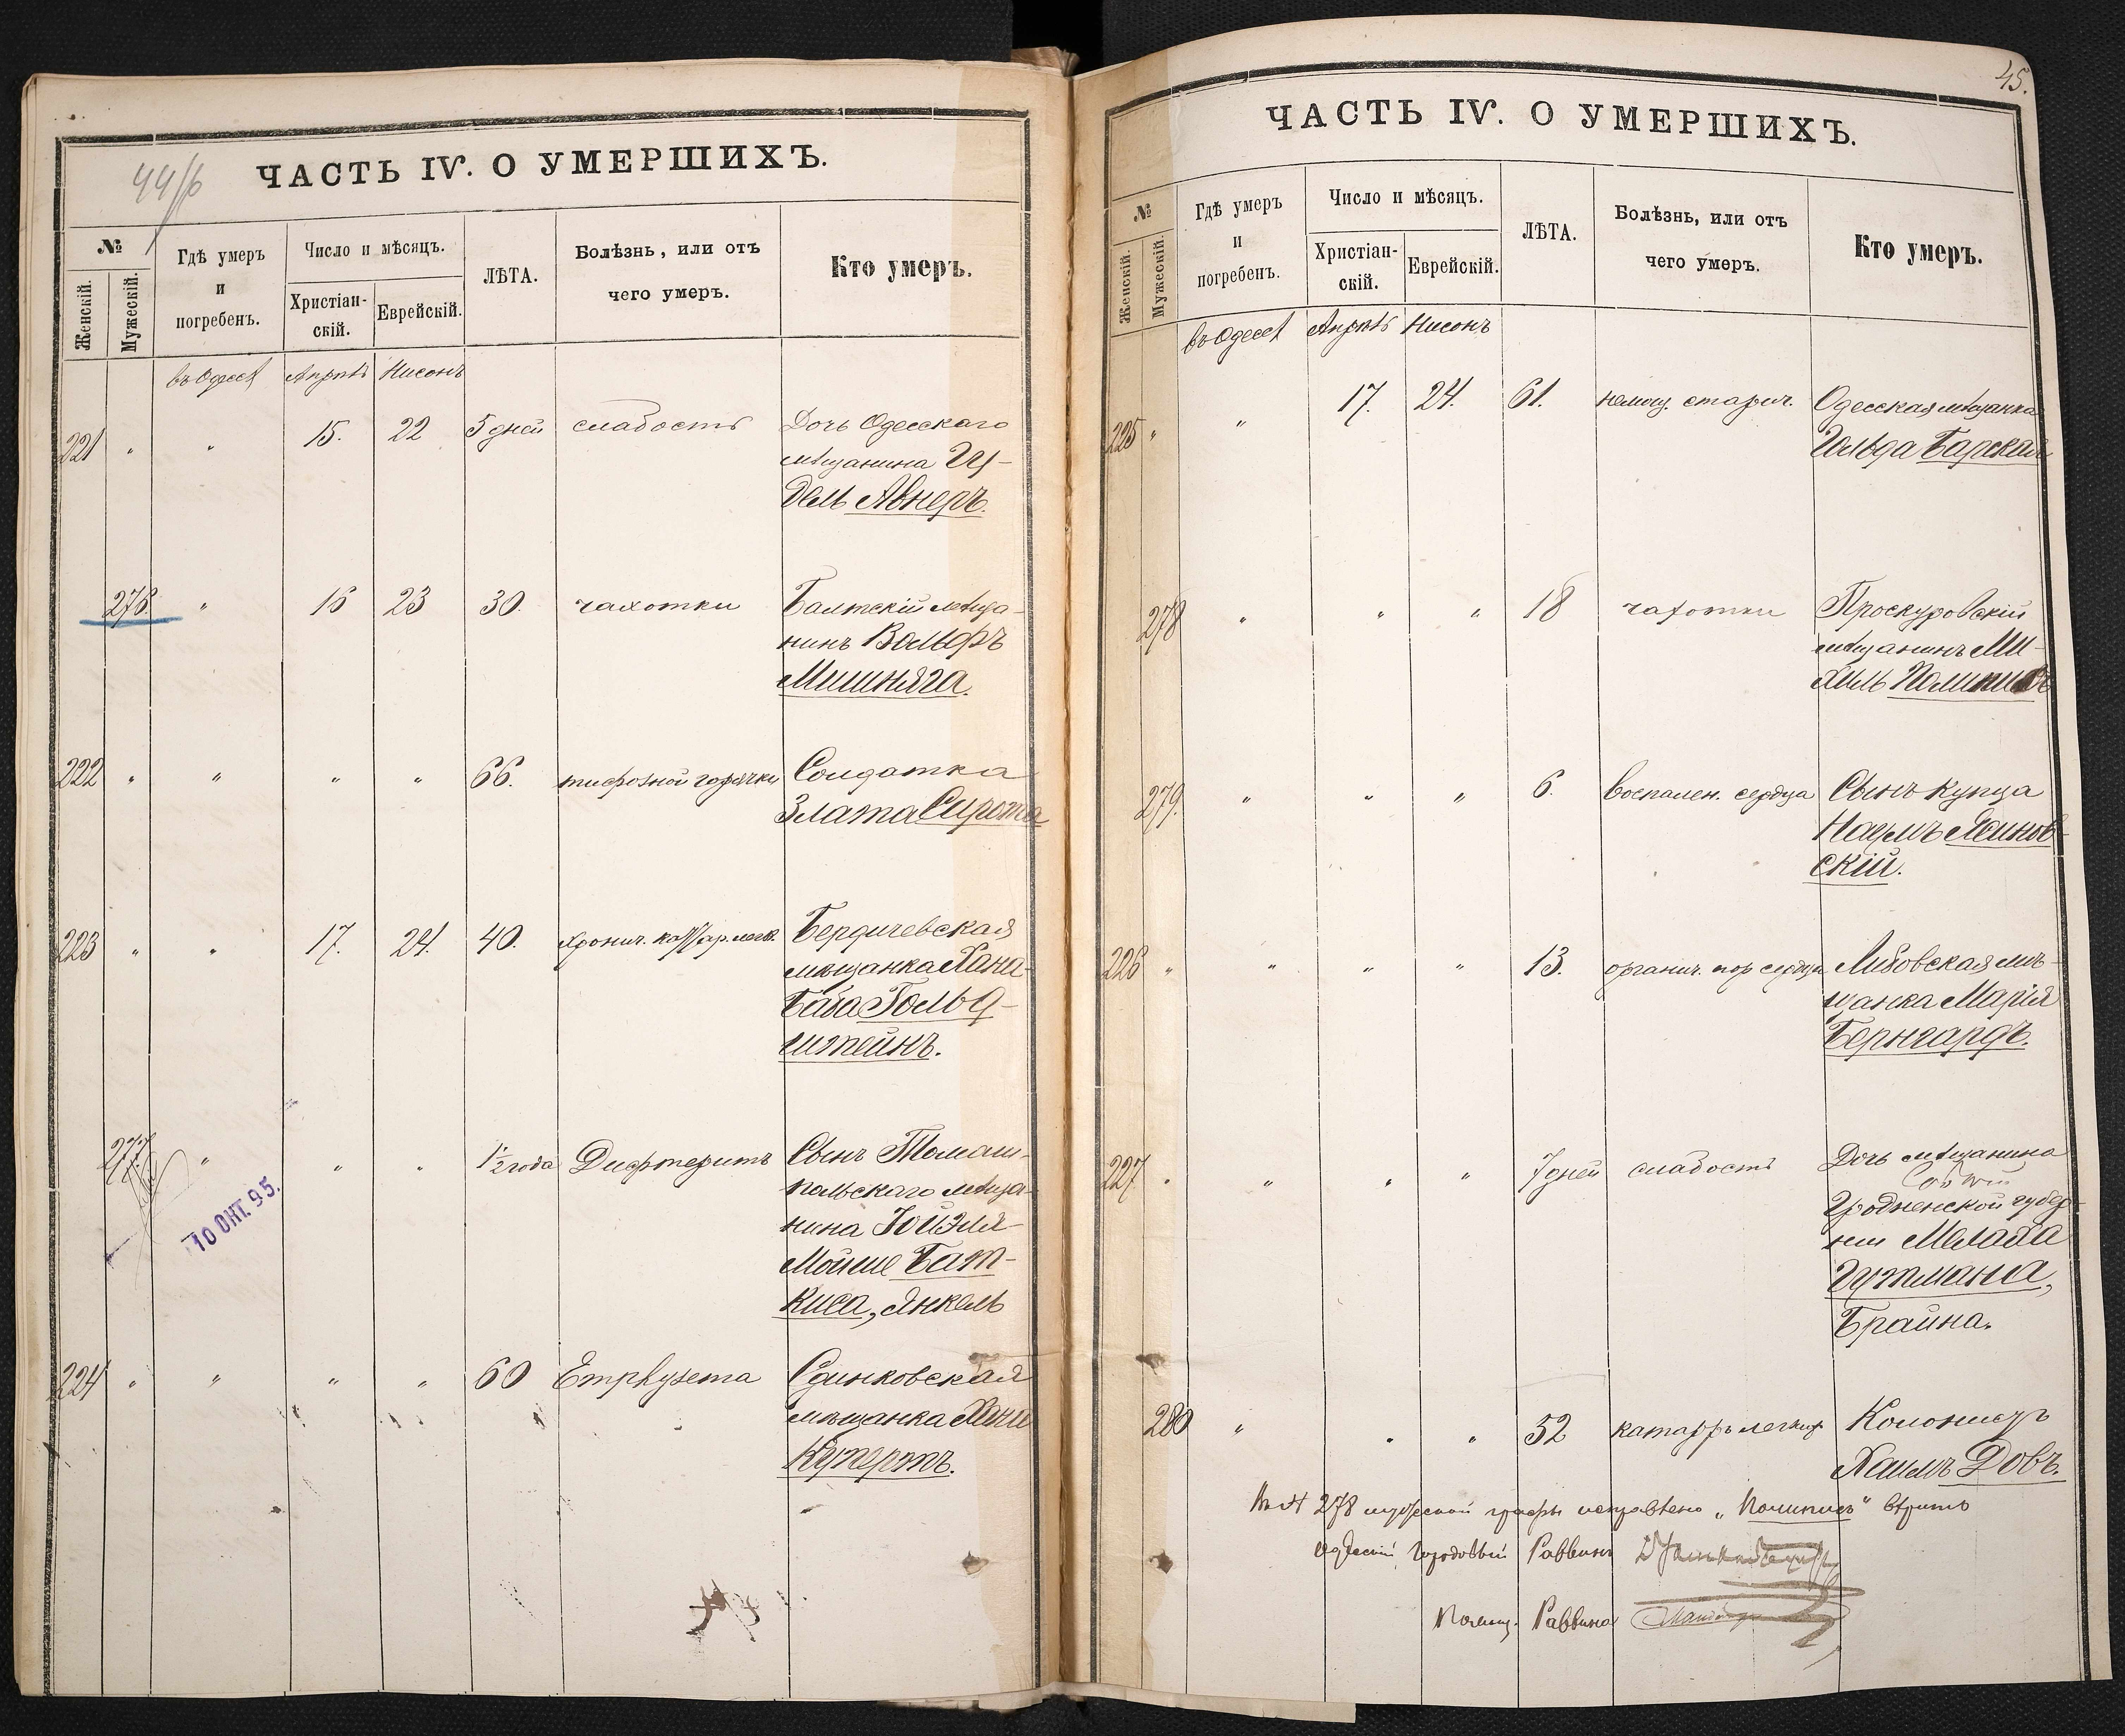 44/б
ЧАСТЬ IV. О УМЕРШИХЪ.
№
Женскій.
Мужескій.
Гдѣ умеръ
и
погребенъ.
Число и мѣсяцъ.
Христіан-
скій.
Еврейскій.
ЛѢТА.
Болѣзнь, или отъ
чего умеръ.
Кто умеръ.
въ Одессѣ Апрѣль Нисонъ
221 " " 15. 22 5 дней слабость Дочь Одесскаго
мѣщанина
Авнеръ.
276. " 16 23 30. чахотки Балтскій мѣща-
нинъ Вольфъ
Мишняга.
222 " " " " 66. тифозной горячки Солдатка
Злата Сирота
223 " " 17. 24. 40. хронич. катар. легк. Бердичевская
мѣщанка Хана-
Баба Гольд-
штейнъ.
277 " " " 1½ года Дифтеритъ Сынъ Томаш-
польскаго мѣща-
нина Іойэля-
Мойше Бат-
киса, Янкель
10 ОКТ. 95.
224 " " " " 60 Emphysema Сѣдинковская
мѣщанка Хана
Купертъ.
45.
ЧАСТЬ IV. О УМЕРШИХЪ.
№
Женскій.
Мужескій.
Гдѣ умеръ
и
погребенъ.
Число и мѣсяцъ.
Христіан-
скій.
Еврейскій.
ЛѢТА.
Болѣзнь, или отъ
чего умеръ.
Кто умеръ.
въ Одессѣ Апрѣль Нисонъ
225 " " 17. 24. 61. немощ. старч. Одесская мѣщанка
Гольда Барская
278 " " " 18 чахотки Проскуровскій
мѣщанинъ Ми-
хель Полинись
279. " " " 6. воспален. сердца Сынъ купца
Наумъ Ясинов-
скій.
226 " " " " 13. органич. пор сердца Либовская мѣ-
щанка Марія
Бернгардъ.
227 " " " " 7 дней слабость Дочь мѣщанина
Гродненской губер-
ніи Мелаха
Гутмана,
Брайна.
280 " " " 52 катарръ легких Колонистъ
Хаимъ Довъ.
278 мужеской графы исправлено „Полинись" вѣрить
Одесскій Городовый Раввинъ
Помощ. Раввина